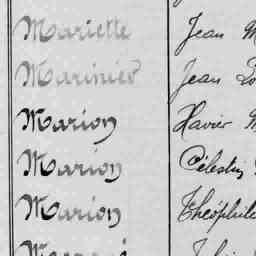 Mariette Jean M
Marinier Jean Lo
Marion Xavier M
Marion Célestin
Marion Théophile